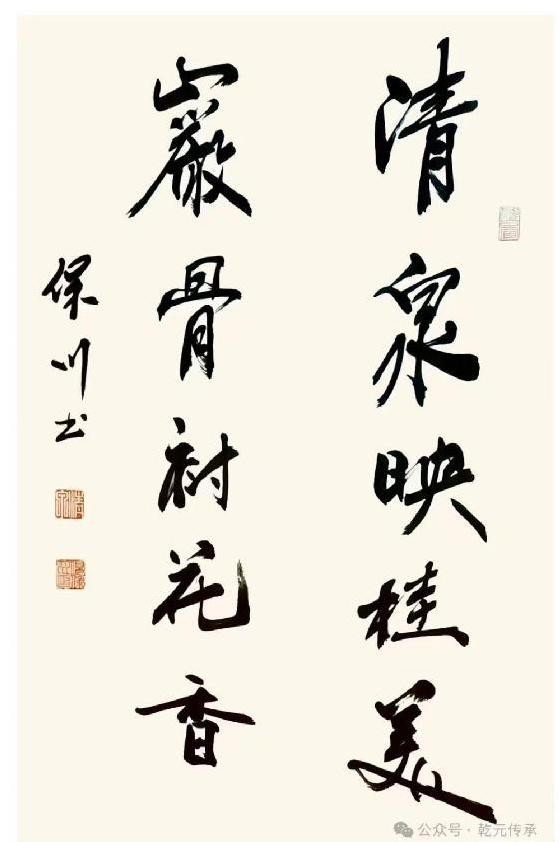 清泉映桂美
巖骨衬花香
保川书
公众号·乾元传承